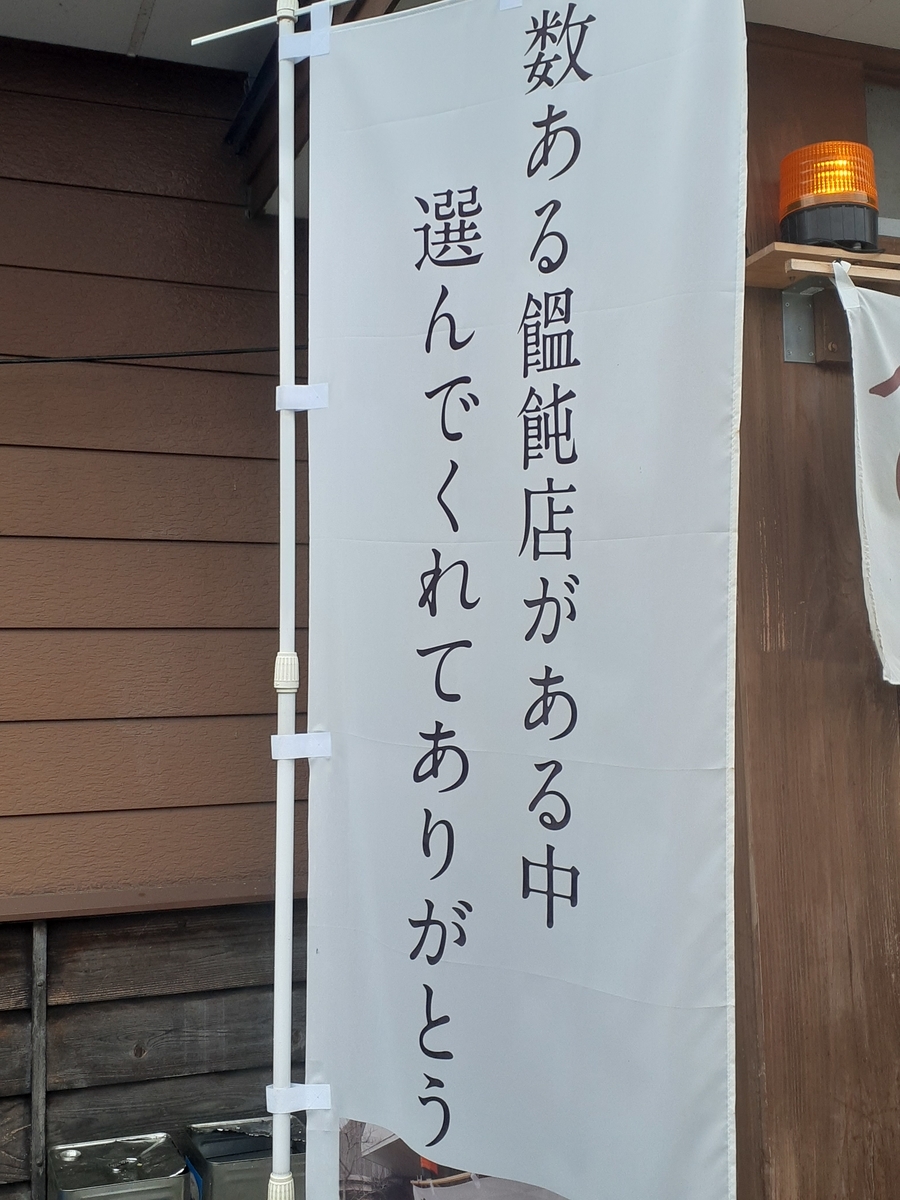 数ある饂飩店がある中
選んでくれてありがとう